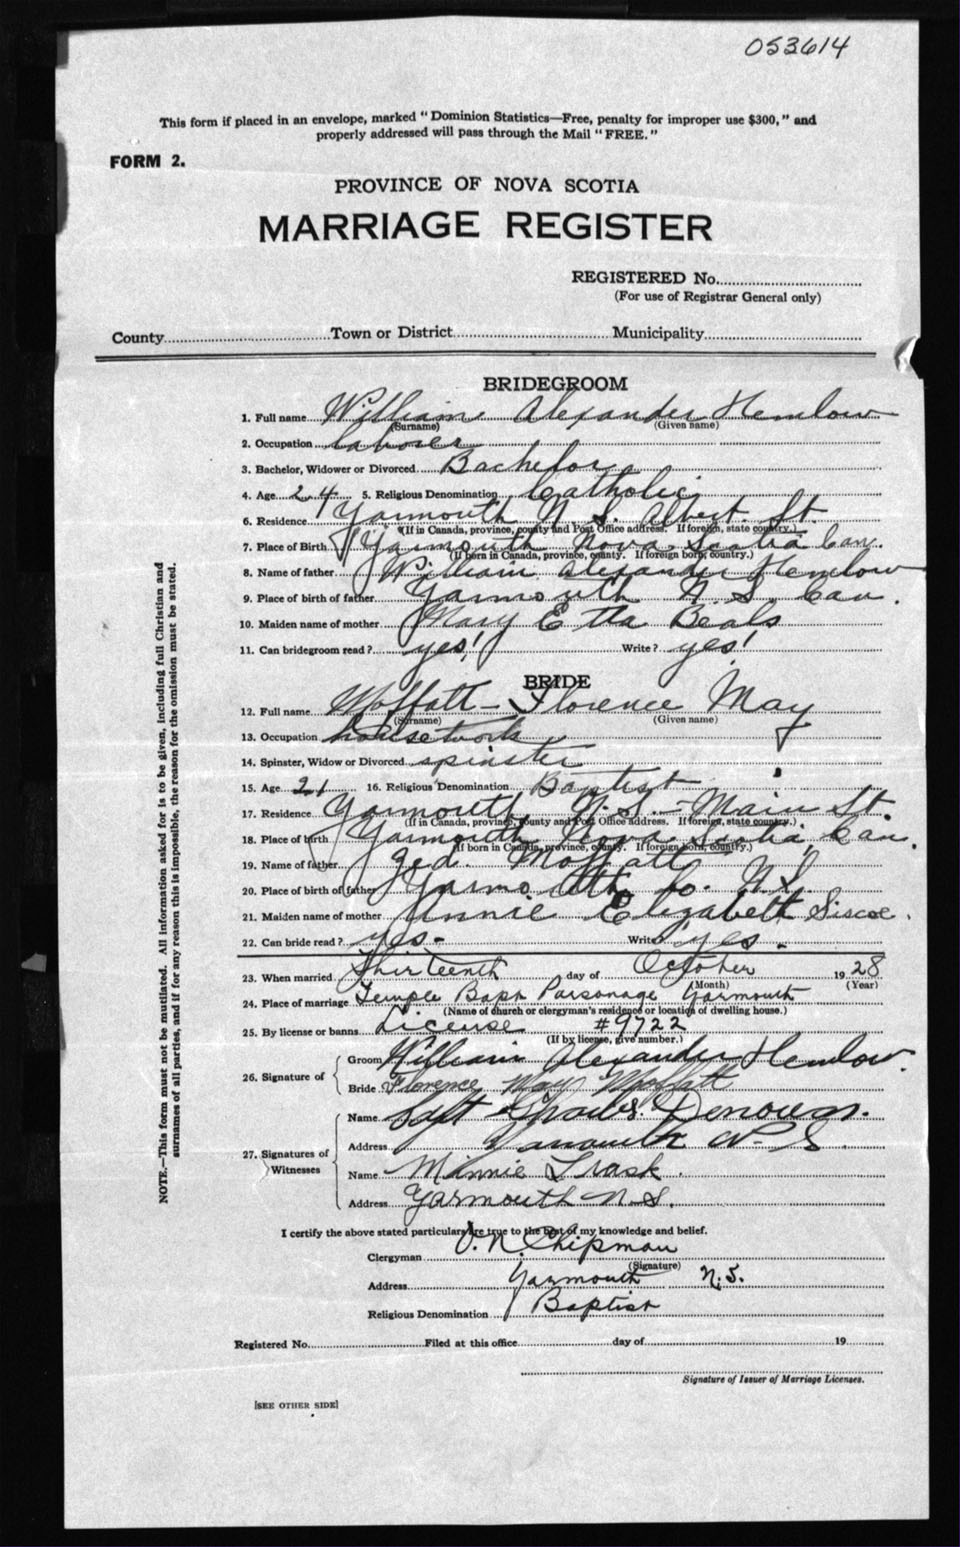 053614
This form if placed in an envelope, marked "Dominion Statistics—Free, penalty for improper use $300," and
properly addressed will pass through the Mail "FREE."
FORM 2.
PROVINCE OF NOVA SCOTIA
MARRIAGE REGISTER
REGISTERED No.
(For use of Registrar General only)
County Town or District Municipality
BRIDEGROOM
1. Full name William Alexander Hemlow
(Surname) (Given name)
2. Occupation laborer
3. Bachelor, Widower or Divorced Bachelor
4. Age 24 5. Religious Denomination Catholic
6. Residence Yarmouth N.S. Albert. St.
(If in Canada, province, county and Post Office address. If foreign, state country.)
7. Place of Birth Yarmouth Nova Scotia Can.
(If born in Canada, province, county. If foreign born, country.)
8. Name of father William Alexander Hemlow
9. Place of birth of father Yarmouth N.S. Can.
10. Maiden name of mother Mary Etta Beals
11. Can bridegroom read? yes! Write? yes!
BRIDE
12. Full name Moffatt - Florence May
(Surname) (Given name)
13. Occupation housework
14. Spinster, Widow or Divorced spinster
15. Age 21 16. Religious Denomination Baptist
17. Residence Yarmouth, N.S. - Main St.
(If in Canada, province, county and Post Office address. If foreign, state country.)
18. Place of birth Yarmouth Nova Scotia, Can.
(If born in Canada, province, county. If foreign born, country.)
19. Name of father Moffatt
20. Place of birth of father Yarmouth Co. N.S.
21. Maiden name of mother Annie Elizabeth Siscoe.
22. Can bride read? yes - Write yes -
23. When married Thirteenth day of October 1928
(Month) (Year)
24. Place of marriage Temple Bapt Parsonage Yarmouth
(Name of church or clergyman's residence or location of dwelling house.)
25. By license or banns License #9722
(If by license, give number.)
26. Signature of
Groom William Alexander Hemlow.
Bride Florence May Moffatt
27. Signatures of Witnesses
Name Donovan.
Address Yarmouth N-S
Name Minnie Trask.
Address Yarmouth N.S.
I certify the above stated particulars are true to the best of my knowledge and belief.
Clergyman Chipman
(Signature)
Address Yarmouth N.S.
Religious Denomination Baptist
Registered No. Filed at this office day of 19
Signature of Issuer of Marriage Licenses.
[SEE OTHER SIDE]
NOTE.—This form must not be mutilated. All information asked for is to be given, including full Christian and
surnames of all parties, and if for any reason this is impossible, the reason for the omission must be stated.